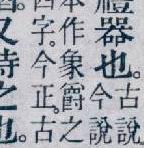 禮器也。古說
今說
本作象爵之
四字。今正。古
又持之也。